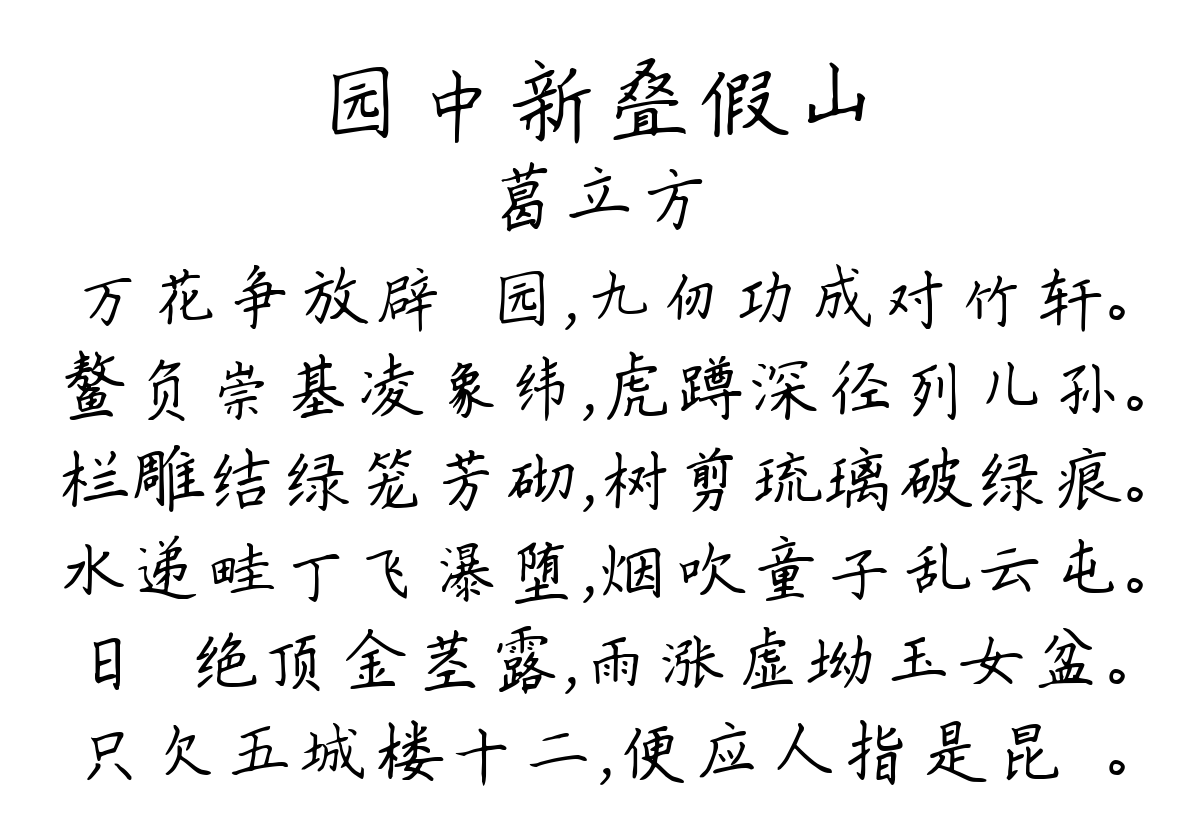 园中新叠假山
葛立方
万花争放辟 园,九仞功成对竹轩。
鳌负崇基凌象纬,虎蹲深径列儿孙。
栏雕结绿笼芳砌,树剪琉璃破绿痕。
水递畦丁飞瀑堕,烟吹童子乱云屯。
日 绝顶金茎露,雨涨虚坳玉女盆。
只欠五城楼十二,便应人指是昆 。